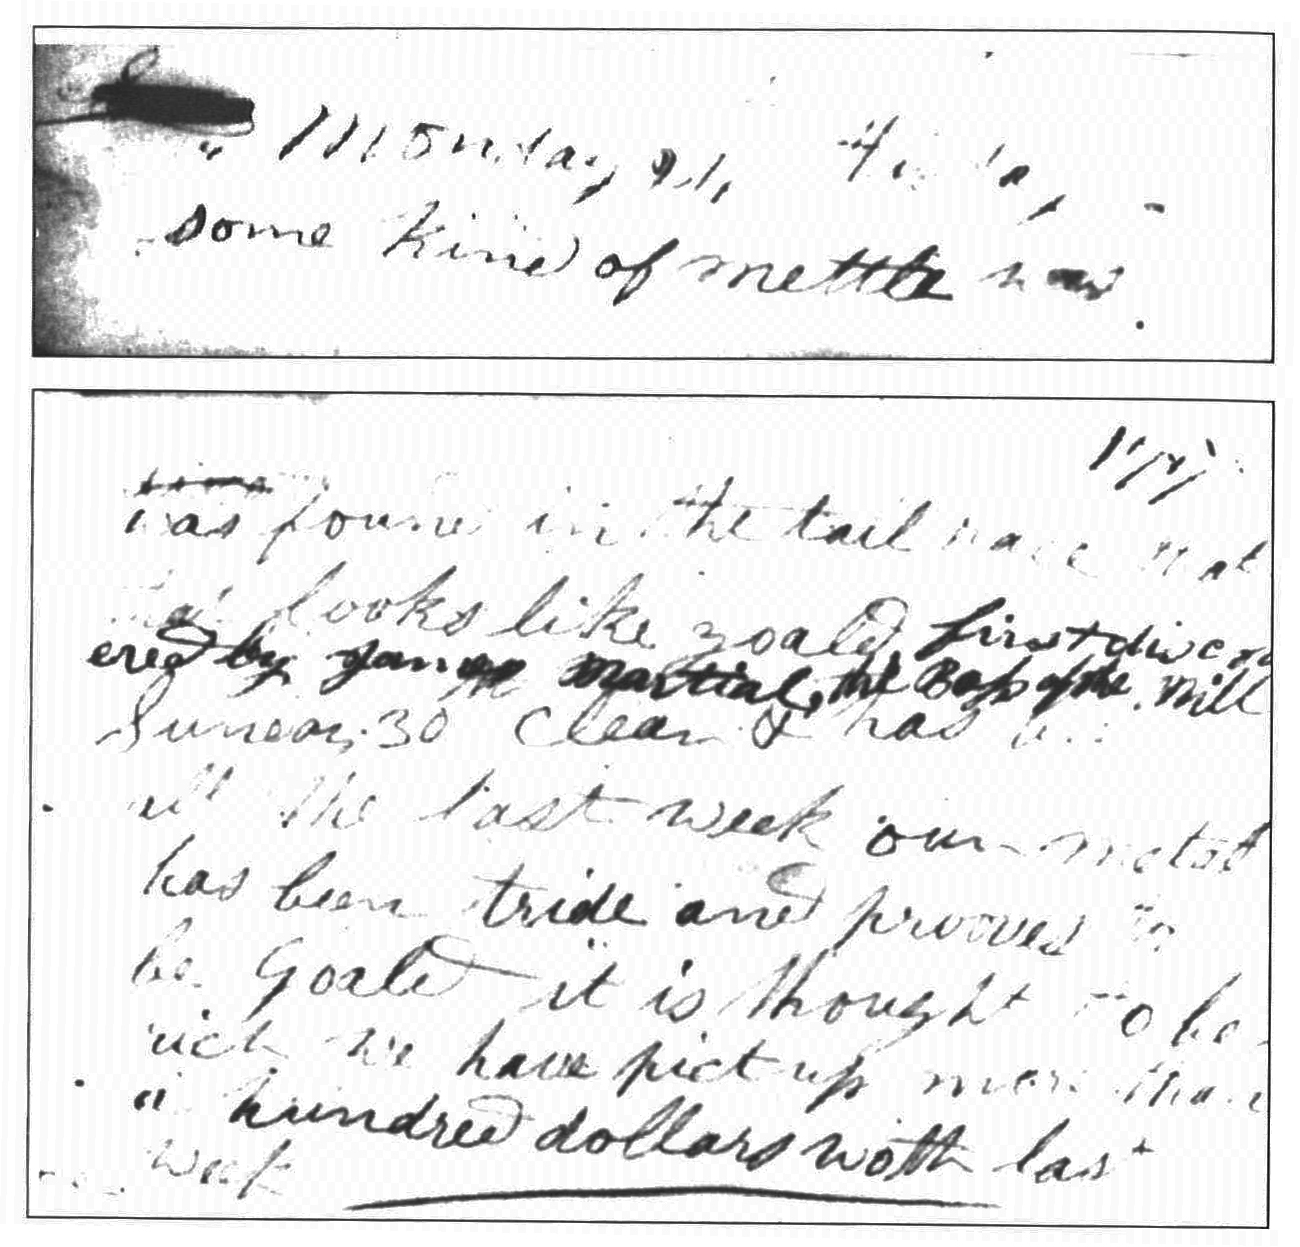 Monday 24 this day
some kind of mettle was
was found in the tail race that
looks like goald first discov
ered by James Martial, the Boss of the Mill
Sunday 30 clear & has
all the last week our metal
has been tride and prooves to
be Goald it is thought to be
rich we have pict up more than
a hundred dollars woth last
week